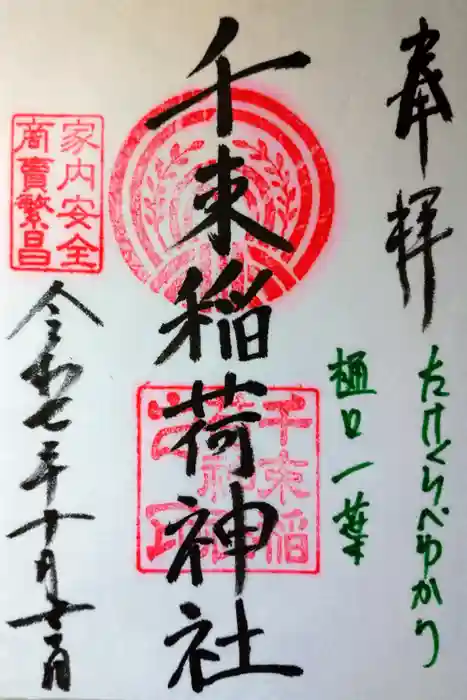 奉拝
たけくらべゆかり
樋口一葉
千束稲荷神社
千束稲
家内安全
商賣繁昌
令和七年十月十一日